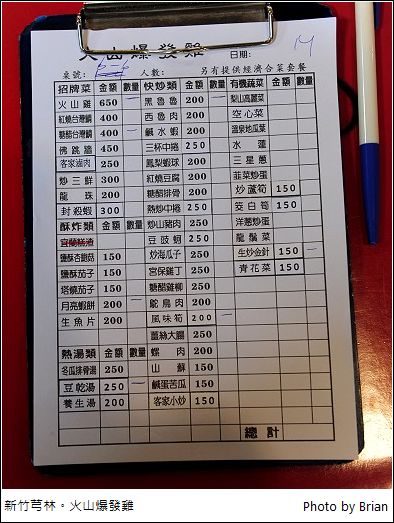 火山爆發雞
日期:
桌號: 人數: 另有提供經濟合菜套餐
招牌菜 金額 數量 快炒類 金額 數量 有機蔬菜 金額 數量
火山雞 650 黑魯魯 200 梨山高麗菜
紅燒台灣鯛 400 西魯肉 200 空心菜
糖醋台灣鯛 400 鹹水蝦 200 溫泉地瓜葉
佛跳牆 450 三杯中捲 250 水蓮
客家滷肉 250 鳳梨蝦球 200 三星蔥
炒三鮮 300 紅燒豆腐 200 韮菜炒蛋
龍珠 200 糖醋排骨 200 炒蘆筍 150
封殺蝦 300 熱炒中捲 250 茭白筍 150
酥炸類 金額 數量 炒山豬肉 250 洋蔥炒蛋
宜蘭糕渣 豆豉蚵 250 龍鬚菜
鹽酥杏鮑菇 150 炒海瓜子 250 生炒金針 150
鹽酥茄子 150 宮保雞丁 250 青花菜 150
塔燒茄子 150 糖醋雞柳 250
月亮蝦餅 200 鴕鳥肉 200
生魚片 200 風味筍 200
薑絲大腸 250
熱湯類 金額 數量 螺肉 200
冬瓜排骨湯 250 山蘇 150
豆乾湯 250 鹹蛋苦瓜 150
養生湯 200 客家小炒 150
總計
新竹芎林。火山爆發雞
Photo by Brian